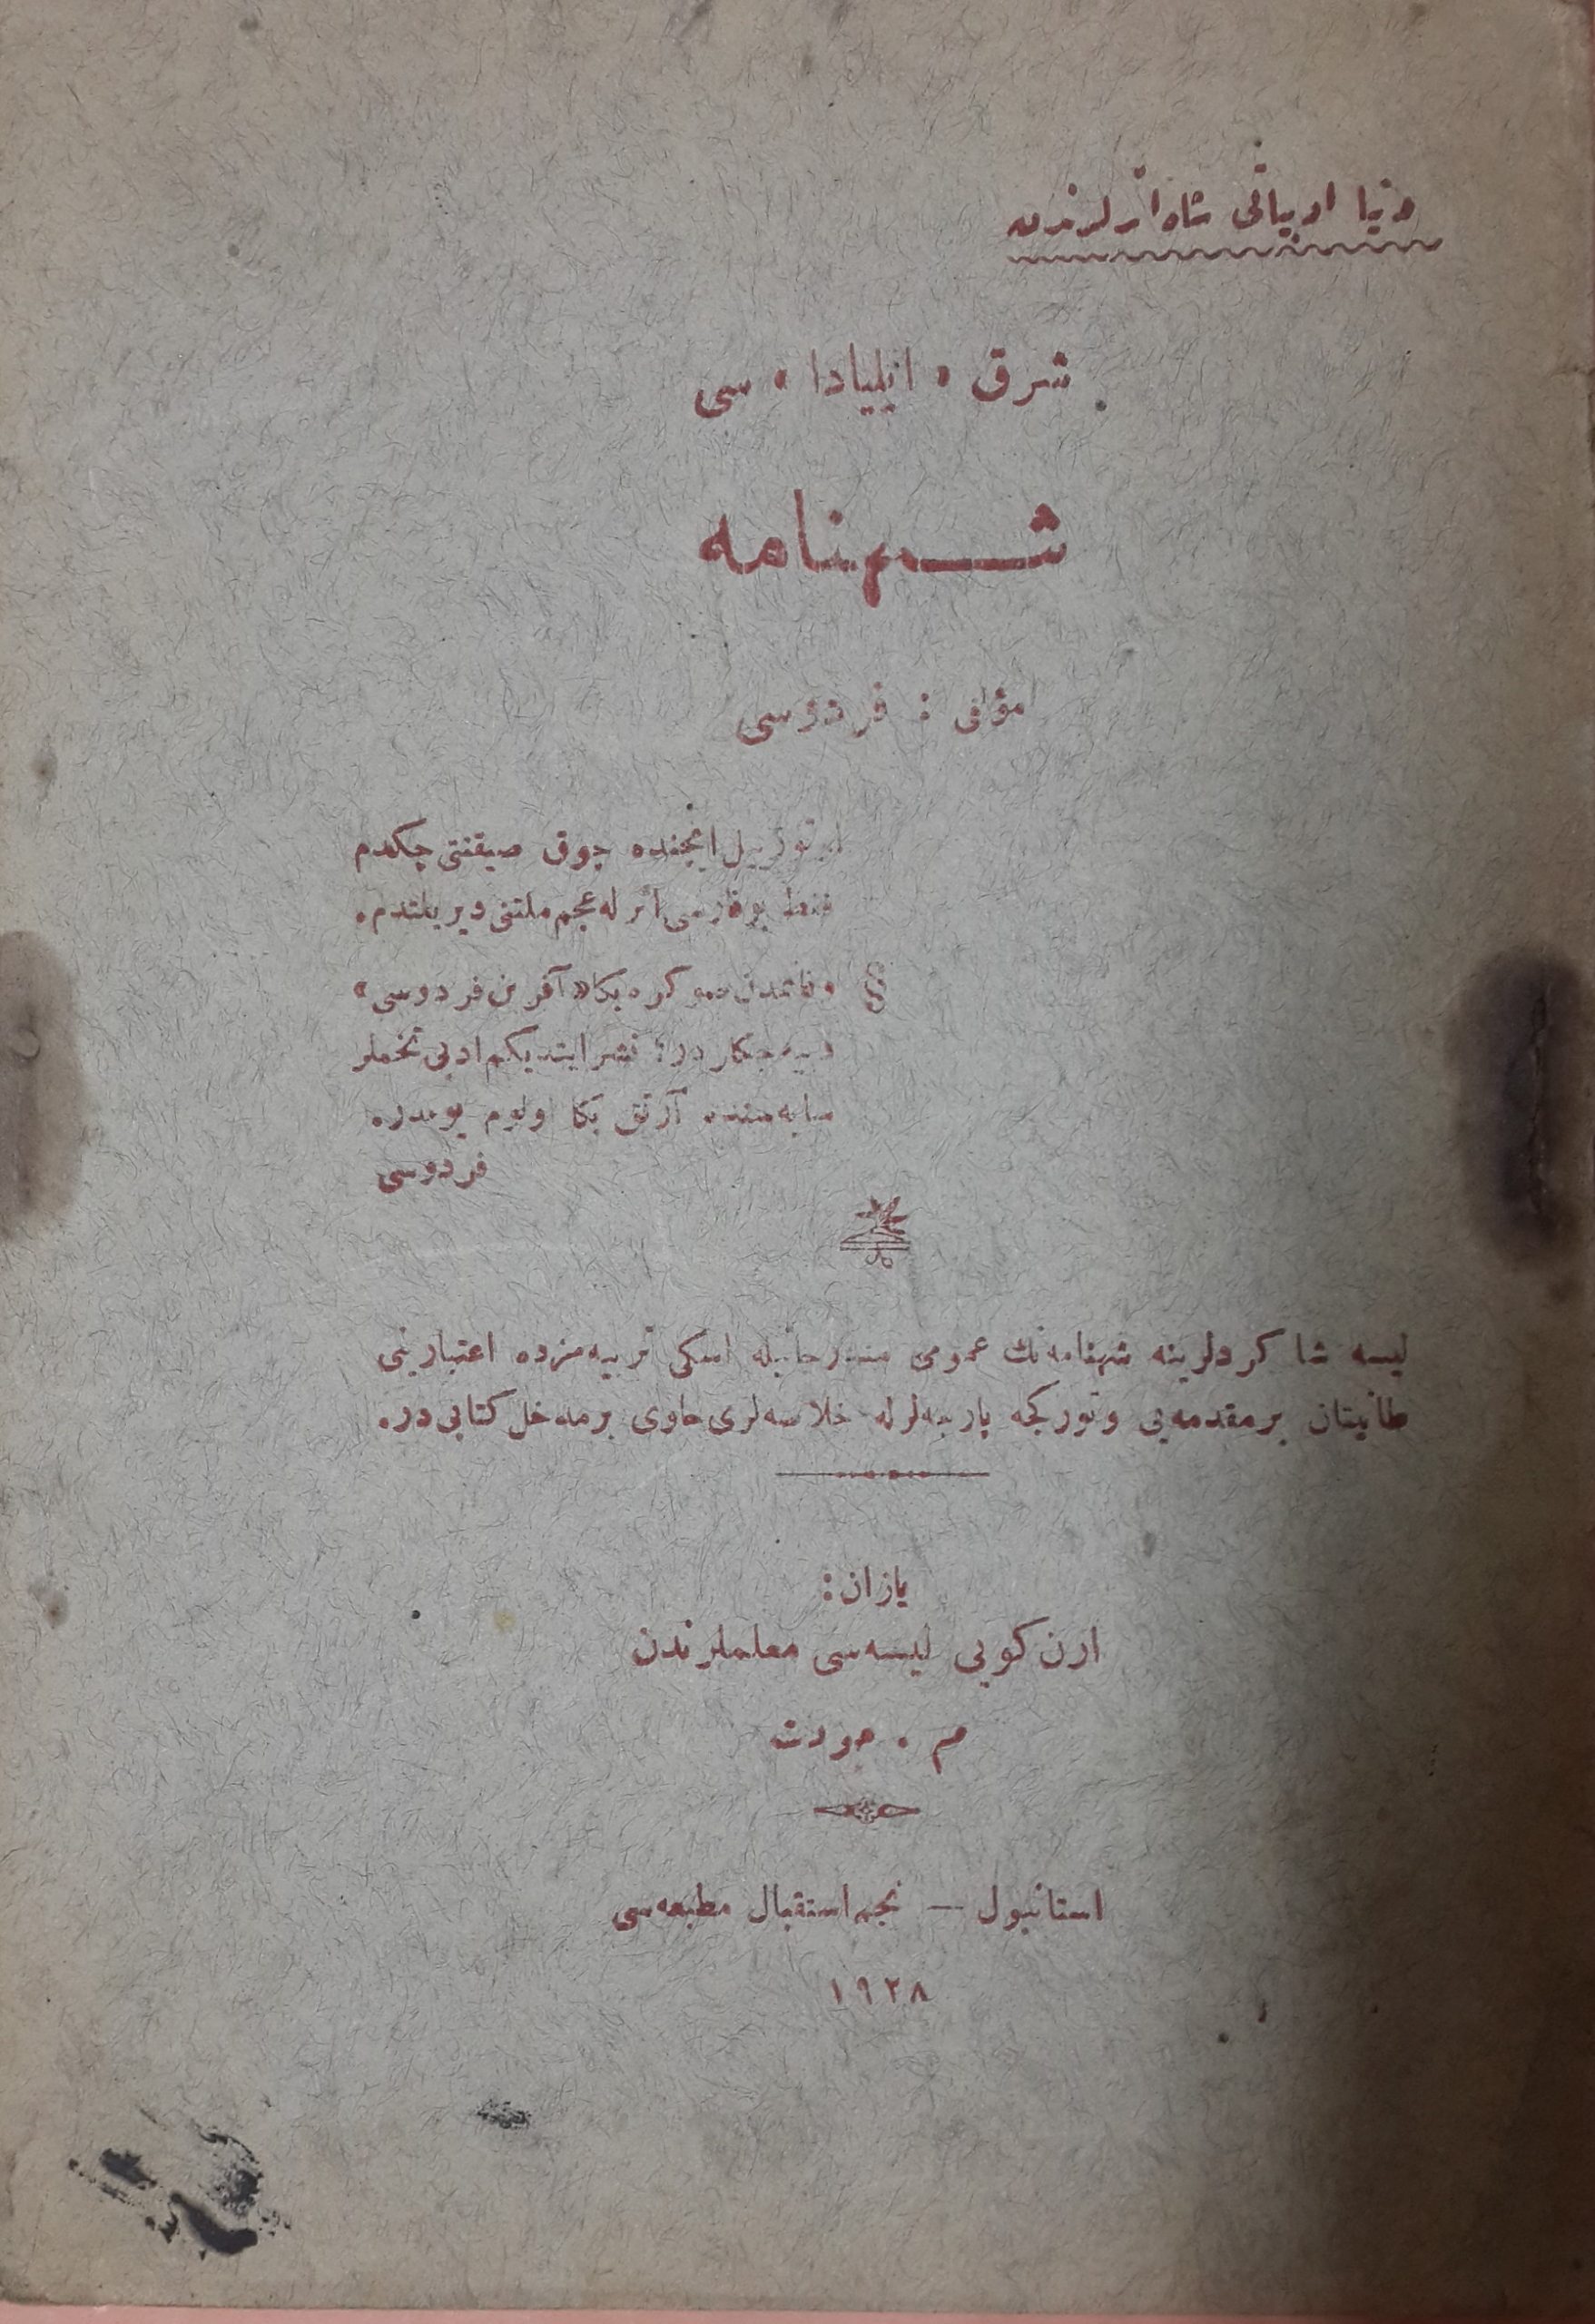 دنیا ادبیاتی شاه اثرلرندن
شرق « ایلیادا » سی
شهنامه
مؤلفی : فردوسی
اوتوز ییل ایچنده چوق صیقنتی چکدم
فقط بو فارسی اثرله عجم ملتنی دیریلتدم.
§ وفاتمدن صوکره بکا « آفرین فردوسی »
دییه جکلردر؛ نشر ایتدیکم ادبی تخملر
سایه سنده آرتق بکا اولوم یوقدر.
فردوسی
لیسه شاکردلرینه شهنامه نك عمومی مندرجاتیله اسکی تربیه مزده اعتبارینی
طانیتان بر مقدمه یی و تورکجه پارچه لرله خلاصه لری حاوی بر مدخل کتابی در.
یازان :
ارن کویی لیسه سی معلملرندن
م . جودت
استانبول — نجم استقبال مطبعه سی
١٩٢٨